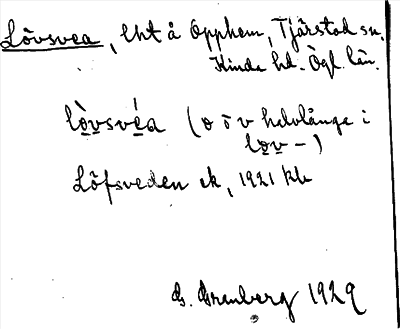 Lövsvea, lht å Opphem, Tjärstad sn.
Kinda hd. Ögl. län.
lòvsvéa (o o v halvlånga i
lov-)
Löfsveden ek, 1921 kb
G. Grenberg 1929